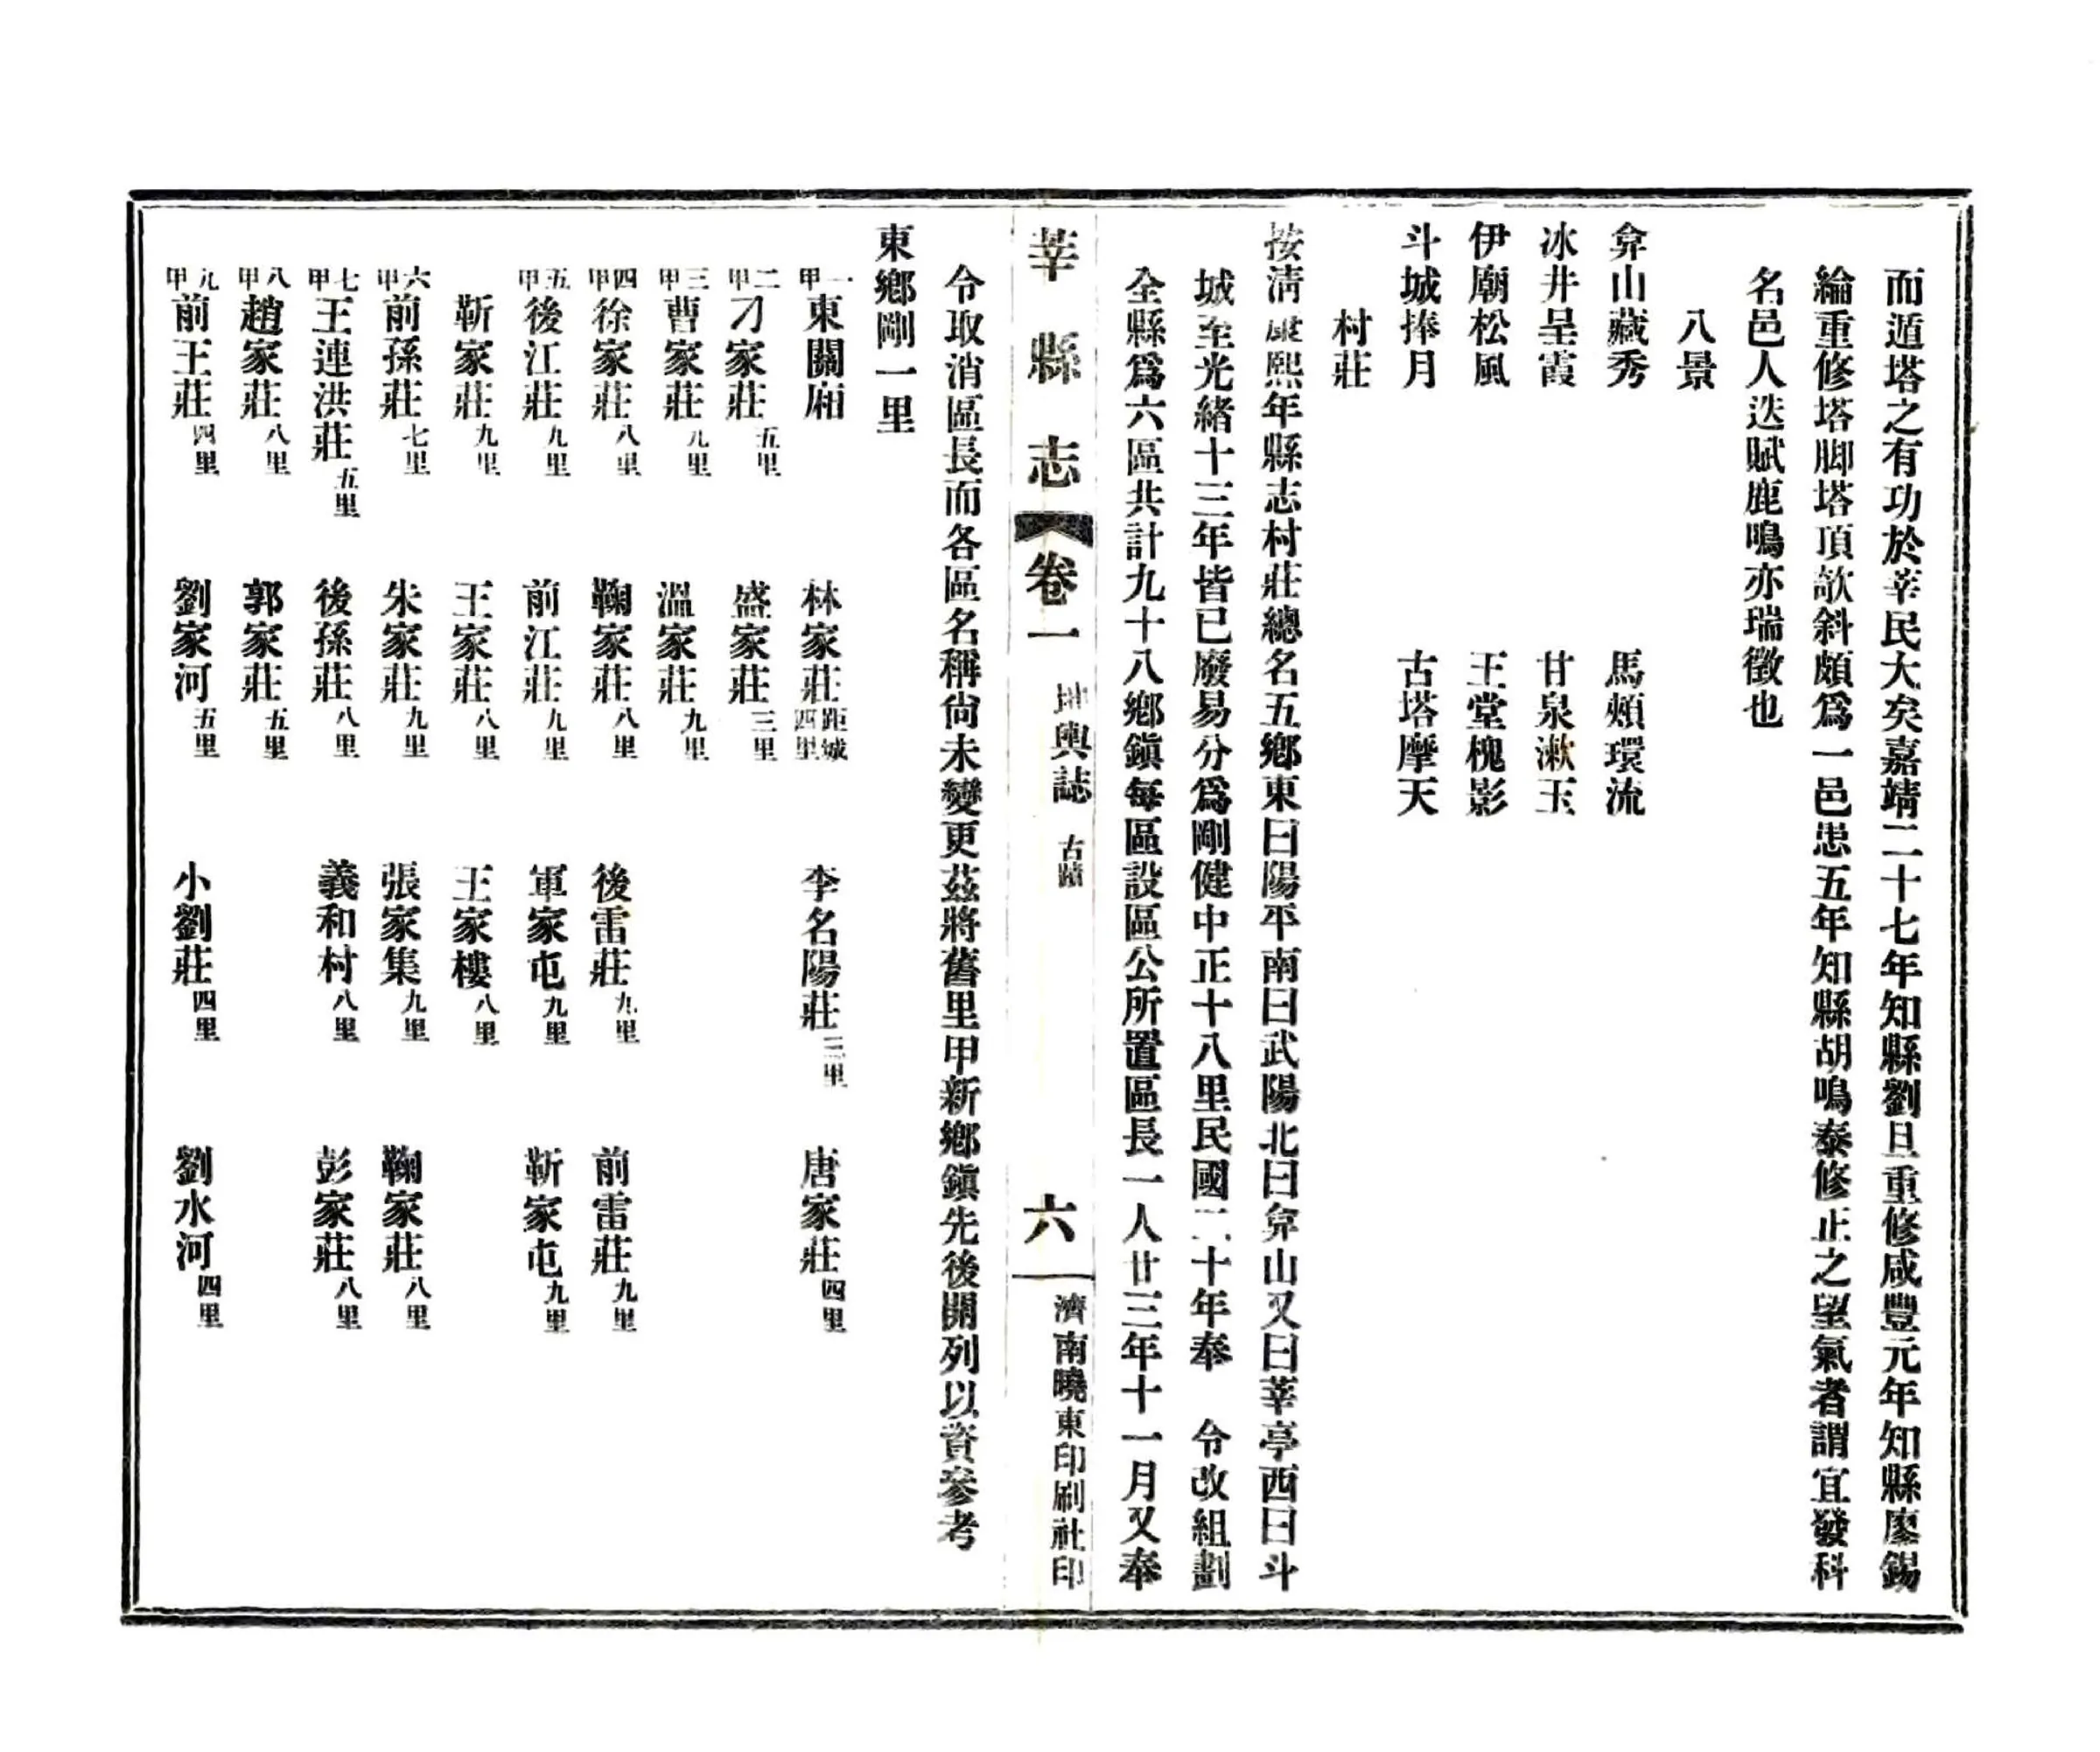 而遁塔之有功於莘民大矣嘉靖二十七年知縣劉旦重修咸豐元年知縣廖錫
綸重修塔脚塔頂欹斜頗爲一邑患五年知縣胡鳴泰修止之望氣者謂宜發科
名邑人迭賦鹿鳴亦瑞徵也
八景
弇山藏秀 馬頰環流
冰井呈霞 甘泉漱玉
伊廟松風 王堂槐影
斗城捧月 古塔摩天
村莊
按清康熙年縣志村莊總名五鄉東曰陽平南曰武陽北曰弇山又曰莘亭西曰斗
城至光緒十三年皆已廢易分爲剛健中正十八里民國二十年奉 令改組劃
全縣爲六區共計九十八鄉鎭每區設區公所置區長一人廿三年十一月又奉
莘縣志 卷一 地輿誌 古蹟 六 濟南曉東印刷社印
令取消區長而各區名稱尙未變更茲將舊里甲新鄉鎭先後開列以資參考
東鄉剛一里
一甲 東關廂 林家莊距城四里 李名陽莊三里 唐家莊四里
二甲 刁家莊五里 盛家莊三里
三甲 曹家莊九里 溫家莊九里
四甲 徐家莊八里 鞠家莊八里 後雷莊九里 前雷莊九里
五甲 後江莊九里 前江莊九里 軍家屯九里 靳家屯九里
靳家莊九里 王家莊八里 王家樓八里
六甲 前孫莊七里 朱家莊九里 張家集九里 鞠家莊八里
七甲 王連洪莊五里 後孫莊八里 義和村八里 彭家莊八里
八甲 趙家莊八里 郭家莊五里
九甲 前王莊四里 劉家河五里 小劉莊四里 劉水河四里